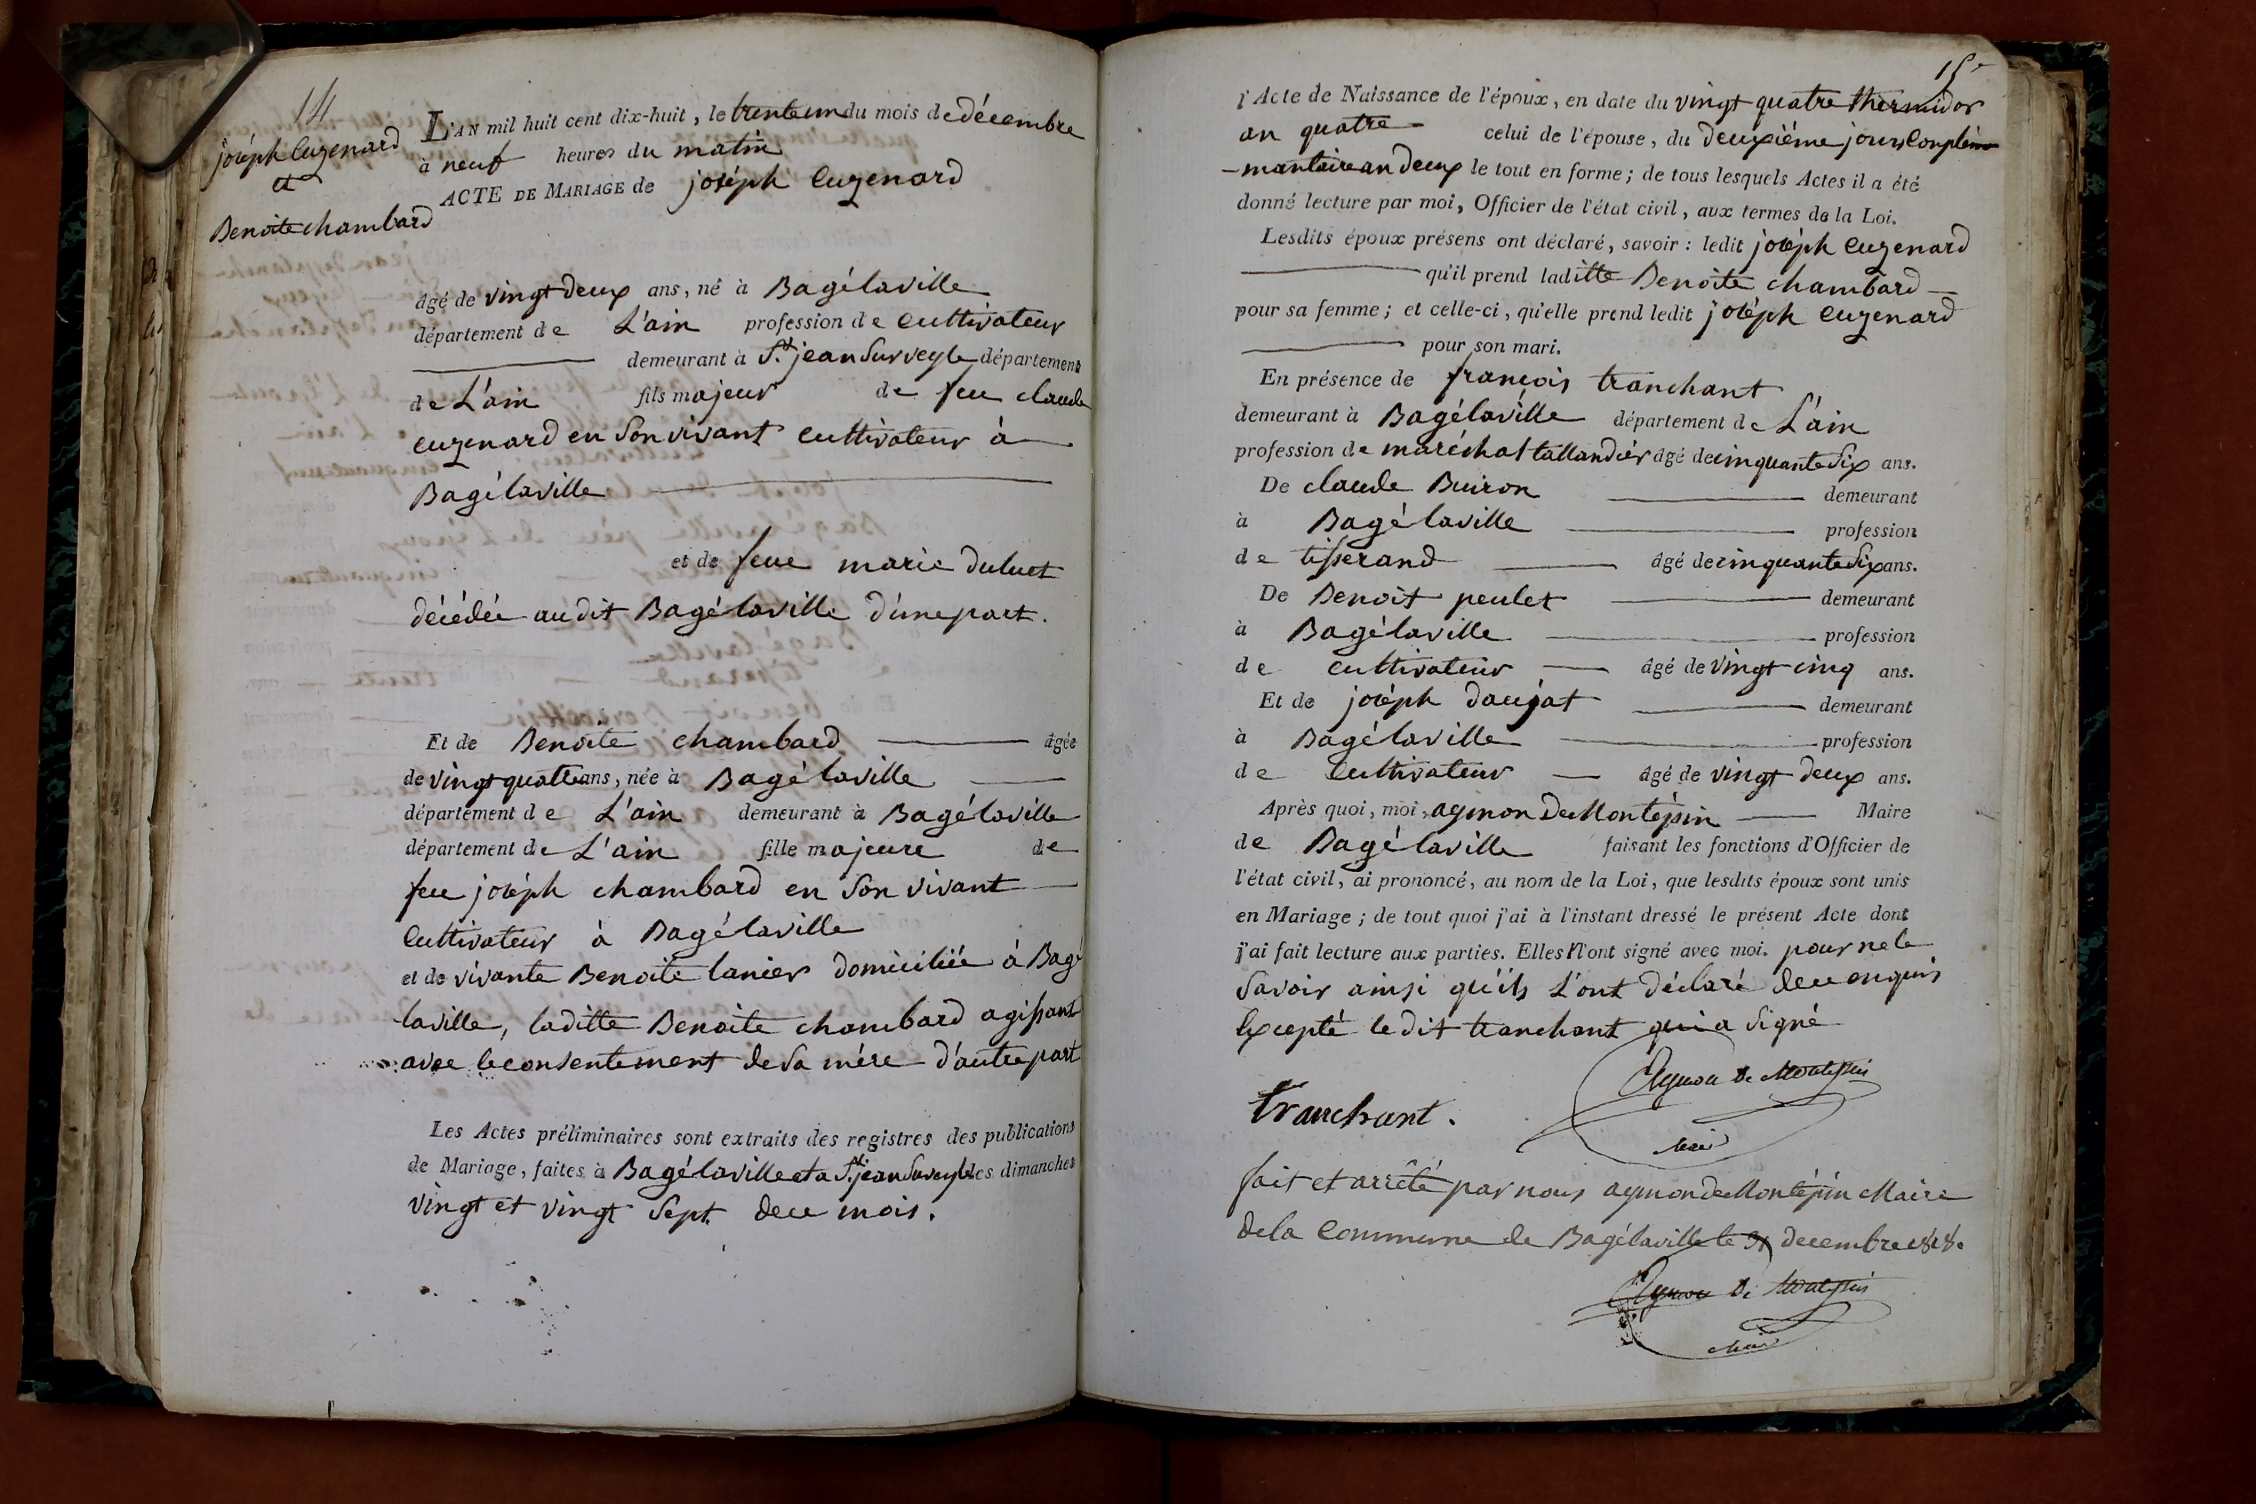 14
joséph Cuzenard
et
Benoite chambard
L'AN mil huit cent dix-huit, le trente un du mois de décembre
à neuf heures du matin
ACTE DE MARIAGE de joséph Cuzenard
âgé de vingt deux ans, né à Bagélaville
département de L'ain profession de Cultivateur
demeurant à St. jean Sur veyle département
de L'ain fils majeur de feu claude
cuzenard en Son vivant cultivateur à
Bagélaville
et de feue marie duluet
décédée audit Bagélaville d'une part.
Et de Benoite chambard âgée
de vingt quatre ans, née à Bagélaville
département de L'ain demeurant à Bagélaville
département de L'ain fille majeure de
feu joséph chambard en Son vivant
Cultivateur à Bagélaville
et de vivante Benoite lanier domiciliée à Bagé
laville, laditte Benoite chambard agissant
avec le consentement de Sa mére d'autre part
Les Actes préliminaires sont extraits des registres des publications
de Mariage, faites à Bagélaville et a St. jean Sur veyle les dimanches
vingt et vingt Sept de ce mois.
15e
l'Acte de Naissance de l'époux, en date du vingt quatre thermidor
an quatre celui de l'épouse, du deuxiéme jour Complém
-mantaire an deux le tout en forme; de tous lesquels Actes il a été
donné lecture par moi, Officier de l'état civil, aux termes de la Loi.
Lesdits époux présens ont déclaré, savoir: ledit joséph cuzenard
qu'il prend laditte Benoite chambard
pour sa femme; et celle-ci, qu'elle prend ledit joséph cuzenard
pour son mari.
En présence de françois tranchant
demeurant à Bagélaville département de L'ain
profession de maréchal tallandiér âgé de cinquante Six ans.
De claude Buiron demeurant
à Bagélaville profession
de tisserand âgé de cinquante Six ans.
De Benoit peulet demeurant
à Bagélaville profession
de cultivateur âgé de vingt cinq ans.
Et de joséph daujat demeurant
à Bagélaville profession
de Cultivateur âgé de vingt deux ans.
Après quoi, moi, aymon De Montépin Maire
de Bagélaville faisant les fonctions d'Officier de
l'état civil, ai prononcé, au nom de la Loi, que lesdits époux sont unis
en Mariage; de tout quoi j'ai à l'instant dressé le présent Acte dont
j'ai fait lecture aux parties. Elles n'ont signé avec moi. pour ne le
Savoir ainsi qu'ils L'ont déclaré de ce enquis
Excepté le dit tranchant qui a Signé
Aymon de Montepin
tranchant.
Maire
fait et arrêté par nous aymon de Montépin Maire
de la Commune de Bagélaville le 31 decembre 1818.
Aymon de Montepin
Maire